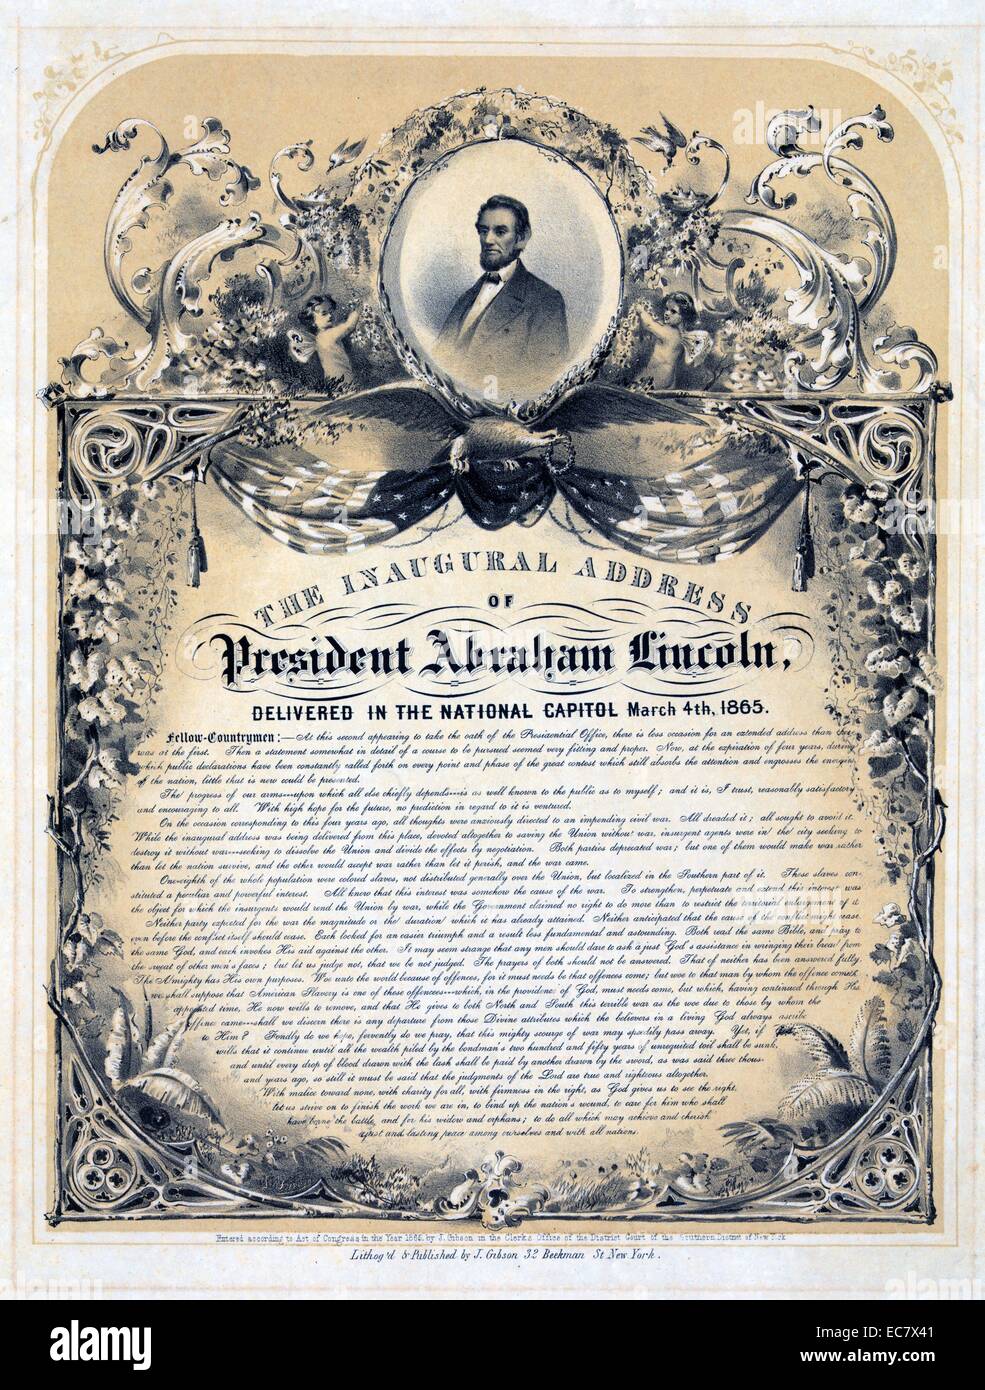 THE INAUGURAL ADDRESS
OF
President Abraham Lincoln,
DELIVERED IN THE NATIONAL CAPITOL March 4th, 1865.
Fellow-Countrymen:—At this second appearing to take the oath of the Presidential Office, there is less occasion for an extended address than there
was at the first. Then a statement somewhat in detail of a course to be pursued seemed very fitting and proper. Now, at the expiration of four years, during
which public declarations have been constantly called forth on every point and phase of the great contest which still absorbs the attention and engrosses the energies
of the nation, little that is new could be presented.
The progress of our arms—upon which all else chiefly depends—is as well known to the public as to myself; and it is, I trust, reasonably satisfactory
and encouraging to all. With high hope for the future, no prediction in regard to it is ventured.
On the occasion corresponding to this four years ago, all thoughts were anxiously directed to an impending civil war. All dreaded it; all sought to avoid it.
While the inaugural address was being delivered from this place, devoted altogether to saving the Union without war, insurgent agents were in the city seeking to
destroy it without war—seeking to dissolve the Union and divide the effects by negotiation. Both parties deprecated war; but one of them would make war rather
than let the nation survive, and the other would accept war rather than let it perish, and the war came.
One-eighth of the whole population were colored slaves, not distributed generally over the Union, but localized in the Southern part of it. These slaves con-
stituted a peculiar and powerful interest. All know that this interest was somehow the cause of the war. To strengthen, perpetuate and extend this interest was
the object for which the insurgents would rend the Union by war, while the Government claimed no right to do more than to restrict the territorial enlargement of it.
Neither party expected for the war the magnitude or the duration which it has already attained. Neither anticipated that the cause of the conflict might cease
even before the conflict itself should cease. Each looked for an easier triumph and a result less fundamental and astounding. Both read the same Bible, and pray to
the same God, and each invokes His aid against the other. It may seem strange that any men should dare to ask a just God's assistance in wringing their bread from
the sweat of other men's faces; but let us judge not, that we be not judged. The prayers of both should not be answered. That of neither has been answered fully.
The Almighty has His own purposes. Woe unto the world because of offences, for it must needs be that offences come; but woe to that man by whom the offence cometh.
we shall suppose that American Slavery is one of these offences—which, in the providence of God, must needs come, but which, having continued through His
appointed time, He now wills to remove, and that He gives to both North and South this terrible war as the woe due to those by whom the
offence came—shall we discern there is any departure from those Divine attributes which the believers in a living God always ascribe
to Him? Fondly do we hope, fervently do we pray, that this mighty scourge of war may speedily pass away. Yet, if
wills that it continue until all the wealth piled by the bondman's two hundred and fifty years of unrequited toil shall be sunk,
and until every drop of blood drawn with the lash shall be paid by another drawn by the sword, as was said three thous-
and years ago, so still it must be said that the judgments of the Lord are true and righteous altogether.
With malice toward none, with charity for all, with firmness in the right, as God gives us to see the right,
let us strive on to finish the work we are in, to bind up the nation's wound, to care for him who shall
have borne the battle, and for his widow and orphans; to do all which may achieve and cherish
a just and lasting peace among ourselves and with all nations.
Entered according to Act of Congress in the Year 1865, by J. Gibson in the Clerks Office of the District Court of the Southern District of New York
Lithog'd & Published by J. Gibson 32 Beekman St New York.
alamy
Image ID: EC7X41
www.alamy.com